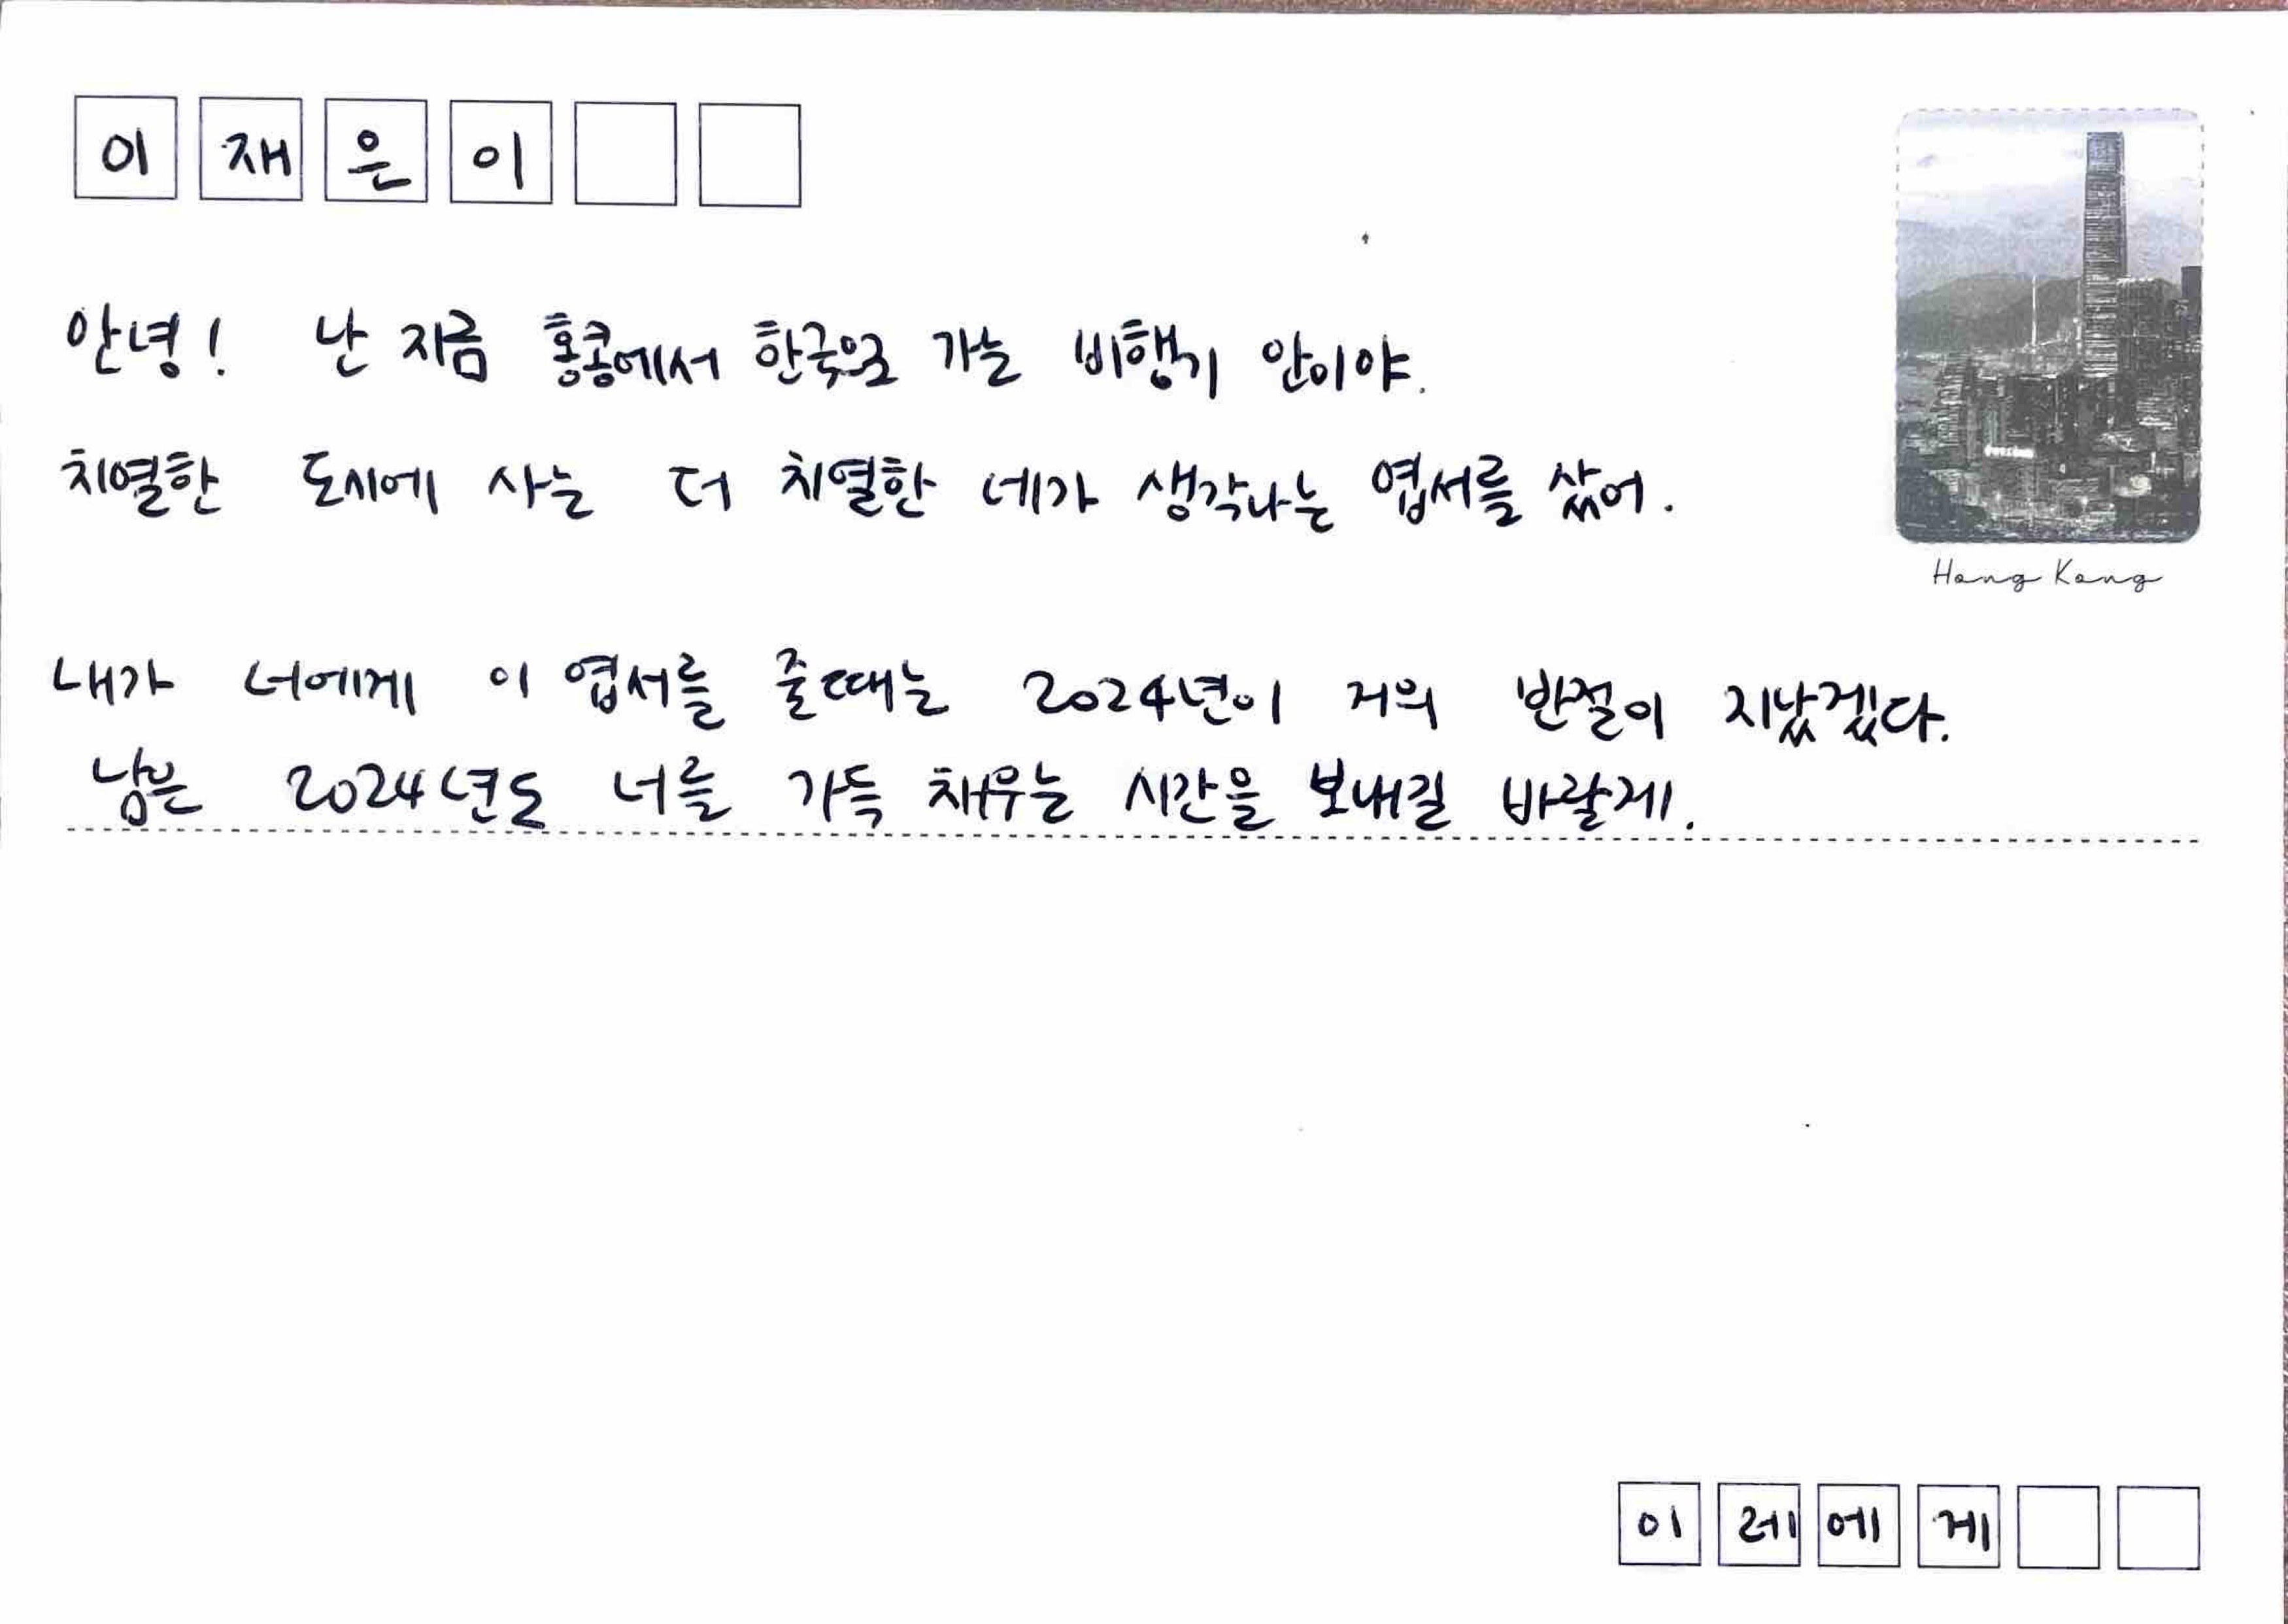 이재은이
안녕! 난 지금 홍콩에서 한국으로 가는 비행기 안이야.
치열한 도시에 사는 더 치열한 네가 생각나는 엽서를 샀어.
Hong Kong
내가 너에게 이 엽서를 줄때는 2024년이 거의 반절이 지났겠다.
남은 2024년도 너를 가득 채우는 시간을 보내길 바랄게.
이레에게